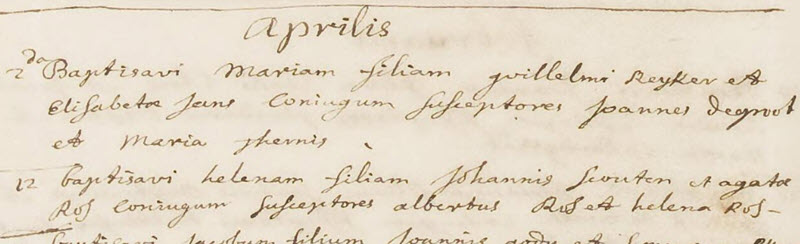 Aprilis
2da Baptisavi Mariam filiam guillelmi Reyker et
Elisabetae Jans Coniugum susceptores Joannes degroot
et Maria
12 baptisavi helenam filiam Johannis Scouten et agatae
Ros Coniugum susceptores albertus Ros et helena Ros-
baptisavi Jacobum filium Joannis et